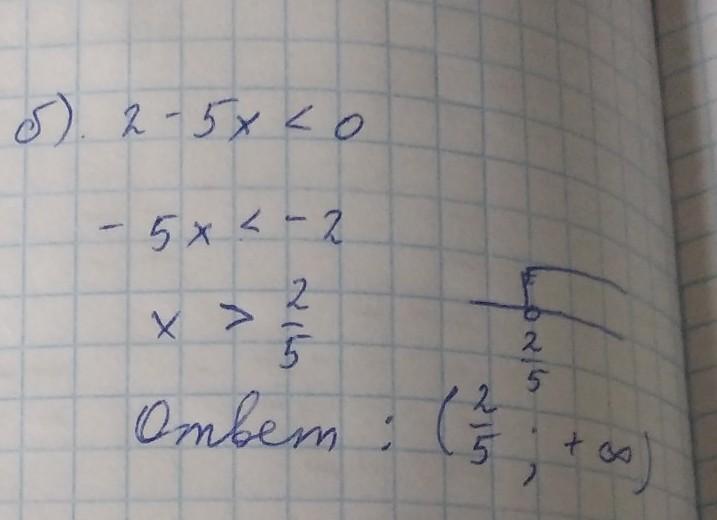 б). 2 - 5x < 0
- 5x < - 2
x > 2/5
2/5
Ответ : (2/5 ; + ∞)